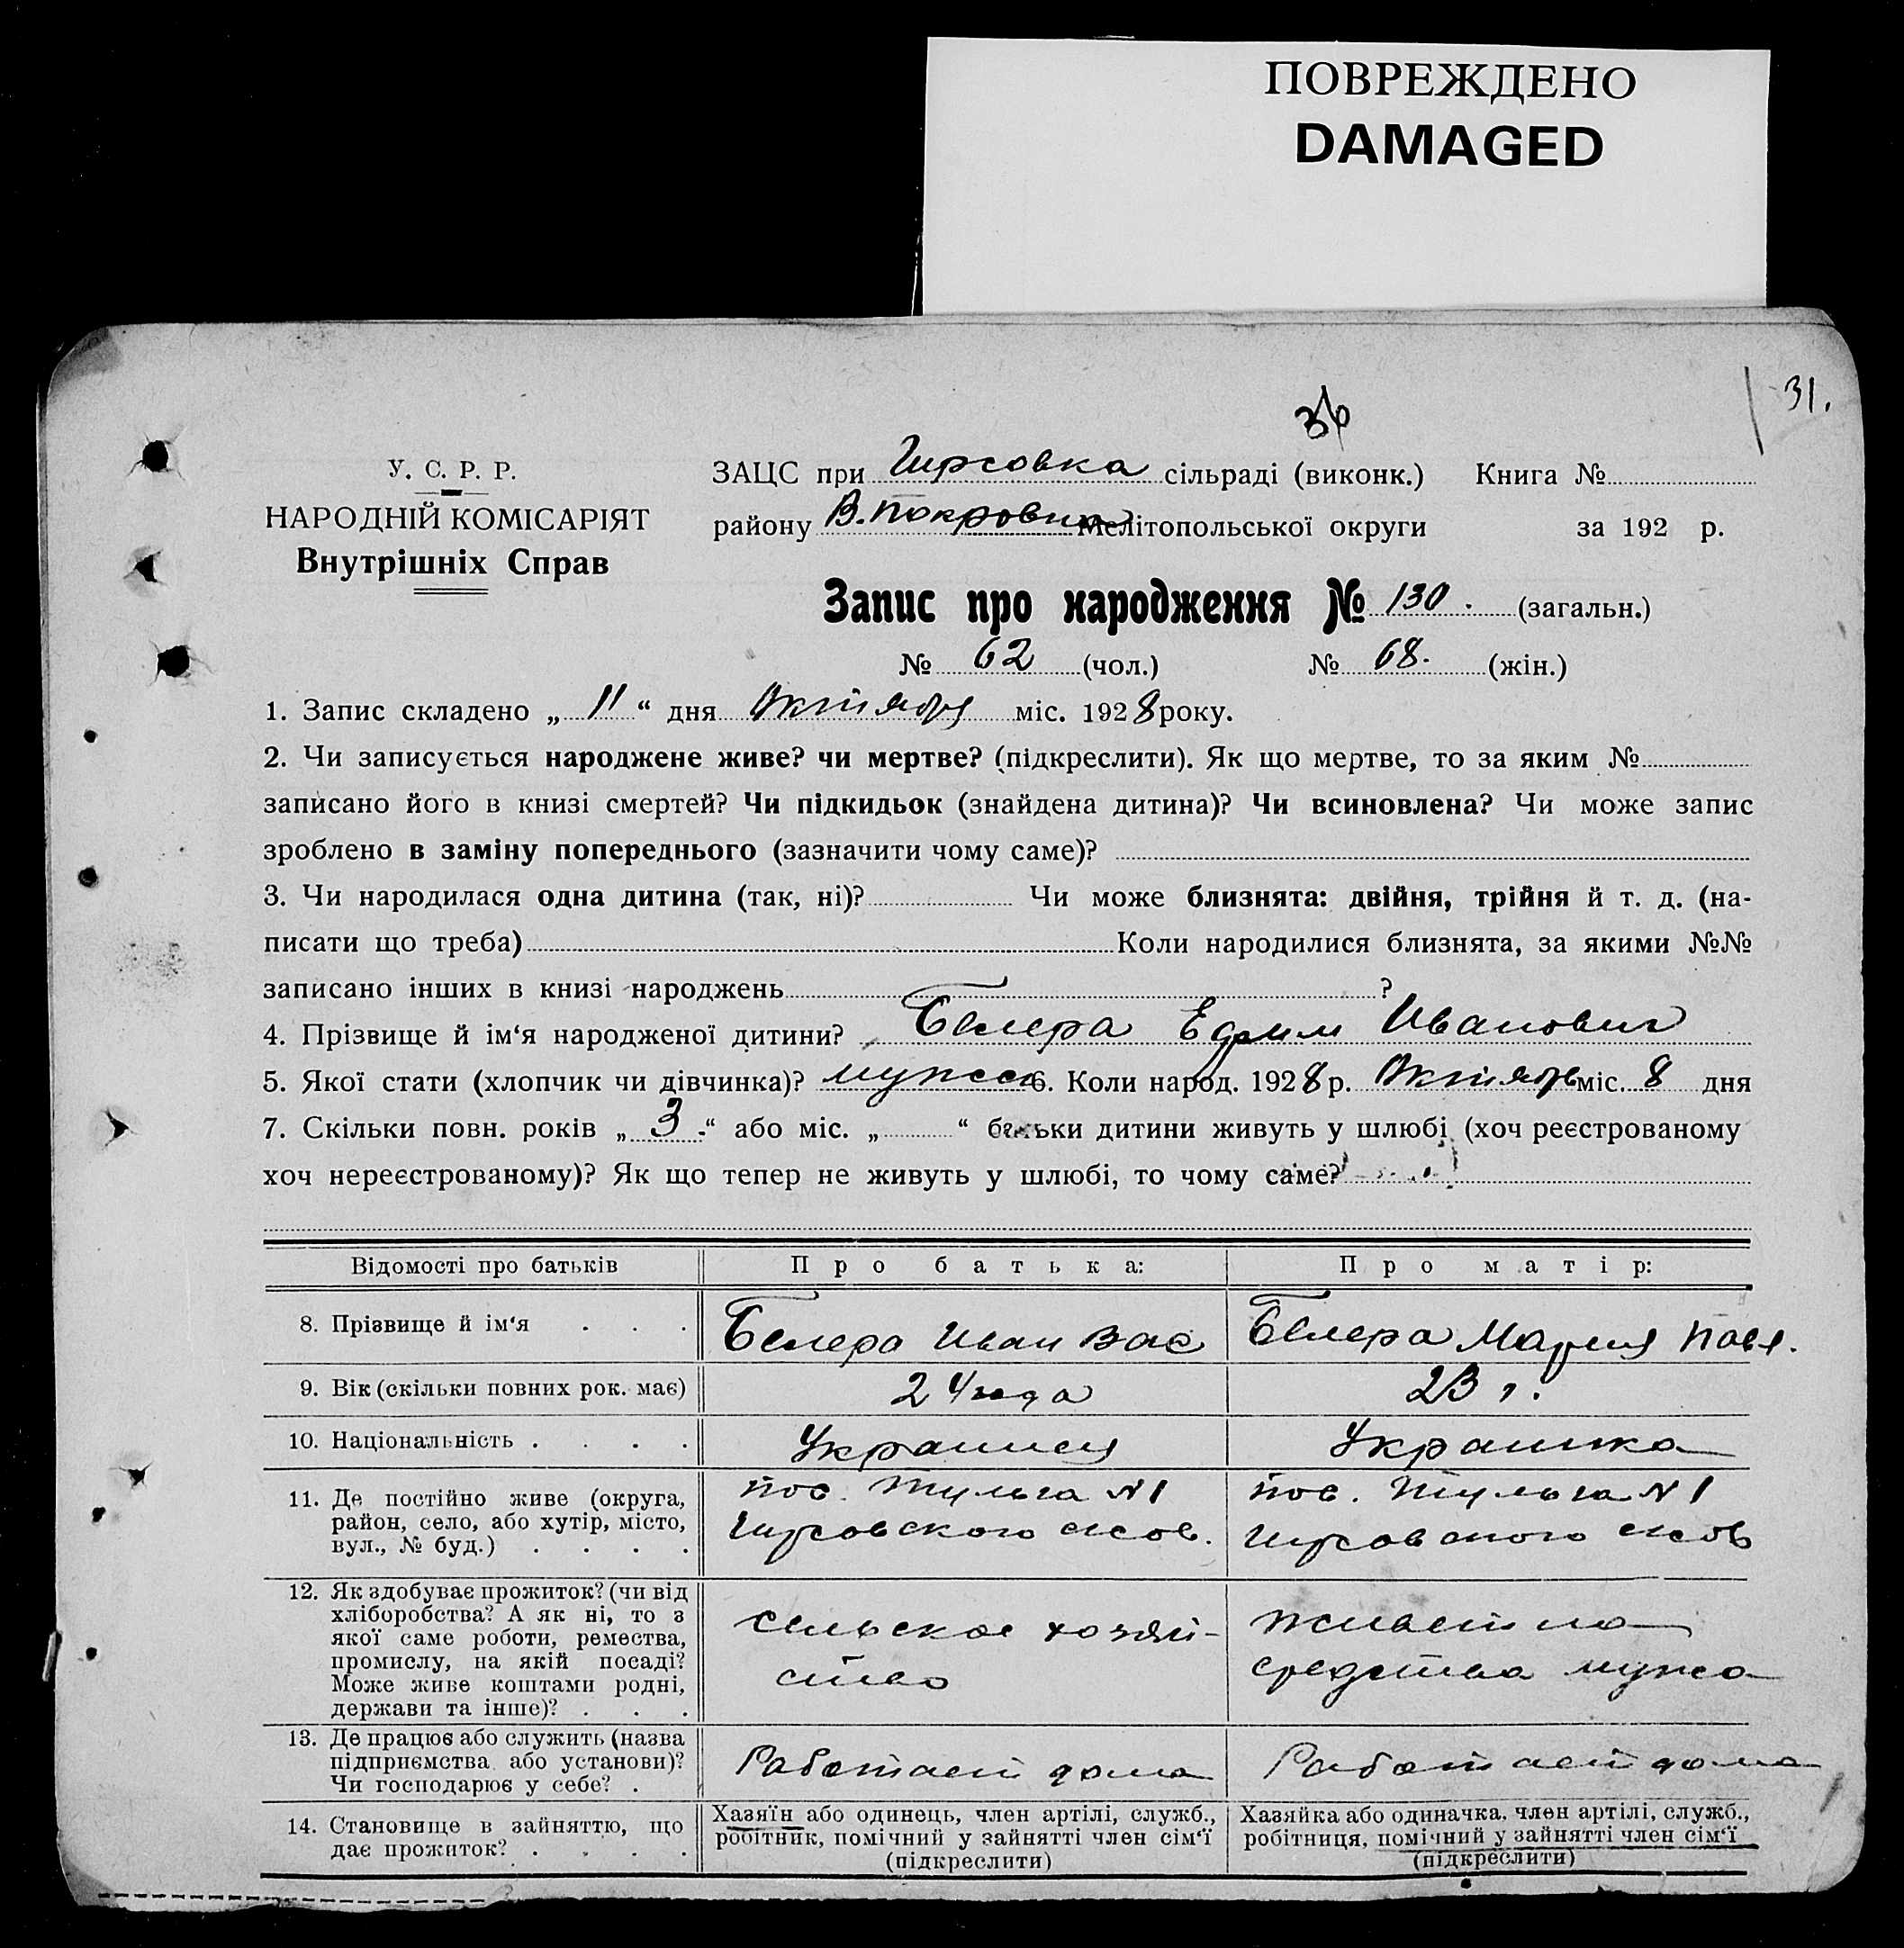 ПОВРЕЖДЕНО
DAMAGED
31.
36
У. С. Р. Р.
НАРОДНІЙ КОМІСАРІЯТ
Внутрішніх Справ
ЗАЦС при Гирсовка сільраді (виконк.) Книга №
району В. Покровка Мелітопольської округи за 192 р.
Запис про народження № 130. (загальн.)
№ 62 (чол.) № 68. (жін.)
1. Запис складено „ 11 “ дня Октября міс. 1928 року.
2. Чи записується народжене живе? чи мертве? (підкреслити). Як що мертве, то за яким №
записано його в книзі смертей? Чи підкидьок (знайдена дитина)? Чи всиновлена? Чи може запис
зроблено в заміну попереднього (зазначити чому саме)?
3. Чи народилася одна дитина (так, ні)? Чи може близнята: двійня, трійня й т. д. (на-
писати що треба) Коли народилися близнята, за якими №№
записано інших в книзі народжень ?
4. Прізвище й ім‘я народженої дитини? Белера Иванович
5. Якої стати (хлопчик чи дівчинка)? мужск 6. Коли народ. 1928 р. Октябрь міс. 8 дня
7. Скільки повн. років „ 3 “ або міс. „ “ батьки дитини живуть у шлюбі (хоч реєстрованому
хоч нереєстрованому)? Як що тепер не живуть у шлюбі, то чому саме?
Відомості про батьків Про батька: Про матір:
8. Прізвище й ім‘я . . . Белера Иван Вас Белера Мария Павл.
9. Вік (скільки повних рок. має) 24 года 23 г.
10. Національність . . . . Украинец Украинка
11. Де постійно живе (округа,
район, село, або хутір, місто,
вул., № буд.) . . . .
пос. Тульга N 1
Гирсовского сисов.
пос. Тульга N 1
Гирсовского сисов
12. Як здобуває прожиток? (чи від
хліборобства? А як ні, то з
якої саме роботи, ремества,
промислу, на якій посаді?
Може живе коштами родні,
держави та інше)? . . .
сельское хозяй-
ство
живет на
средства мужа
13. Де працює або служить (назва
підприємства або установи)?
Чи господарює у себе? .
Работает дома
Работает дома
14. Становище в зайняттю, що
дає прожиток? . . . .
Хазяїн або одинець, член артілі, служб.,
робітник, помічний у зайнятті член сім‘ї
(підкреслити)
Хазяйка або одиначка, член артілі, служб.,
робітниця, помічний у зайнятті член сім‘ї
(підкреслити)